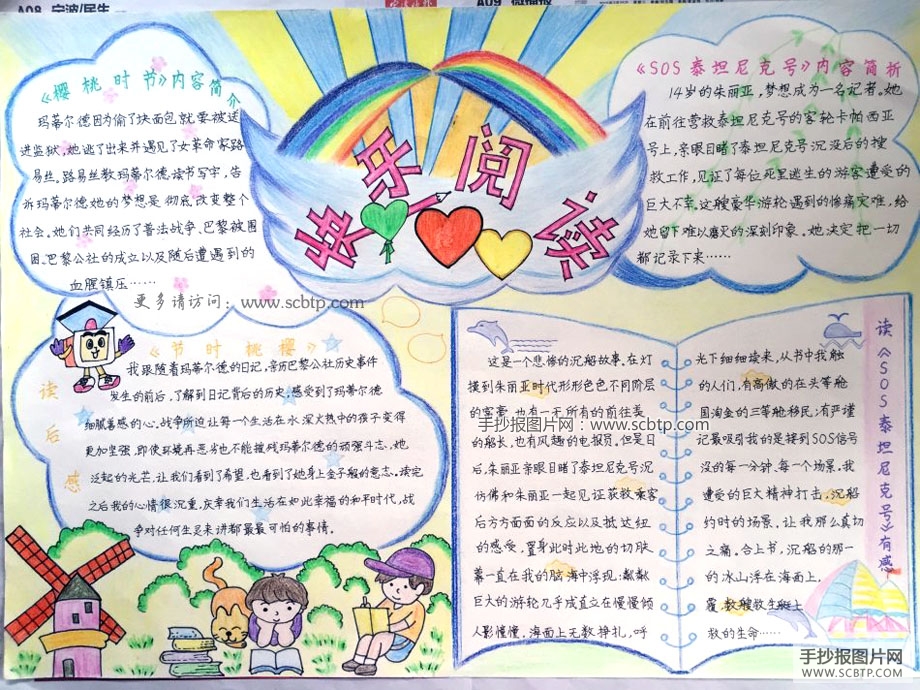 A08 宁波/民生
A09
《樱桃时节》内容简介
玛蒂尔德因为偷了块面包就要被送
进监狱,她逃了出来并遇见了女革命家路
易丝。路易丝教玛蒂尔德读书写字,告
诉玛蒂尔德她的梦想是彻底改变整个
社会。她们共同经历了普法战争、巴黎被围
困、巴黎公社的成立以及随后遭遇到的
血腥镇压……
更多请访问:www.scbtp.com
快乐阅读
《SOS泰坦尼克号》内容简析
14岁的朱丽亚,梦想成为一名记者。她
在前往营救泰坦尼克号的客轮卡帕西亚
号上,亲眼目睹了泰坦尼克号沉没后的搜
救工作,见证了每位死里逃生的游客遭受的
巨大不幸。这艘豪华游轮遇到的惨痛灾难,给
她留下难以磨灭的深刻印象。她决定把一切
都记录下来……
《节时桃樱》
读后感
我跟随着玛蒂尔德的日记,亲历巴黎公社历史事件
发生的前后,了解到日记背后的历史,感受到了玛蒂尔德
细腻善感的心。战争所迫让每一个生活在水深火热中的孩子变得
更加坚强,即使环境再恶劣也不能摧残玛蒂尔德的顽强斗志,她
泛起的光芒,让我们看到了希望,也看到了她身上金子般的意志。读完
之后我的心情很沉重,庆幸我们生活在如此幸福的和平时代,战
争对任何生灵来讲都最最可怕的事情。
这是一个悲惨的沉船故事。在灯
摸到朱丽亚时代形形色色不同阶层
的客霎,也有一无所有的前往美
的船长,也有风趣的电报员,但是日
后,朱丽亚亲眼目睹了泰坦尼克号沉
仿佛和朱丽亚一起见证获救乘客
后方方面面的反应以及抵达纽
的感受,置身此时此地的切肤
幕一直在我的脑海中浮现:粼粼
巨大的游轮几乎成直立在慢慢倾
人影憧憧,海面上无数挣扎,呼
光下细细读来,从书中我触
的人们,有高傲的在头等舱
国淘金的三等舱移民;有严谨
记最吸引我的是接到SOS信号
没的每一分钟,每一个场景,我
遭受的巨大精神打击,沉船
约时的场景,让我那么真切
之痛。合上书,沉船的那一
的冰山浮在海面上,
覆,数艘救生艇上
救的生命……
手抄报图片网:www.scbtp.com
读《SOS泰坦尼克号》有感
手抄报图片网
WWW.SCBTP.COM